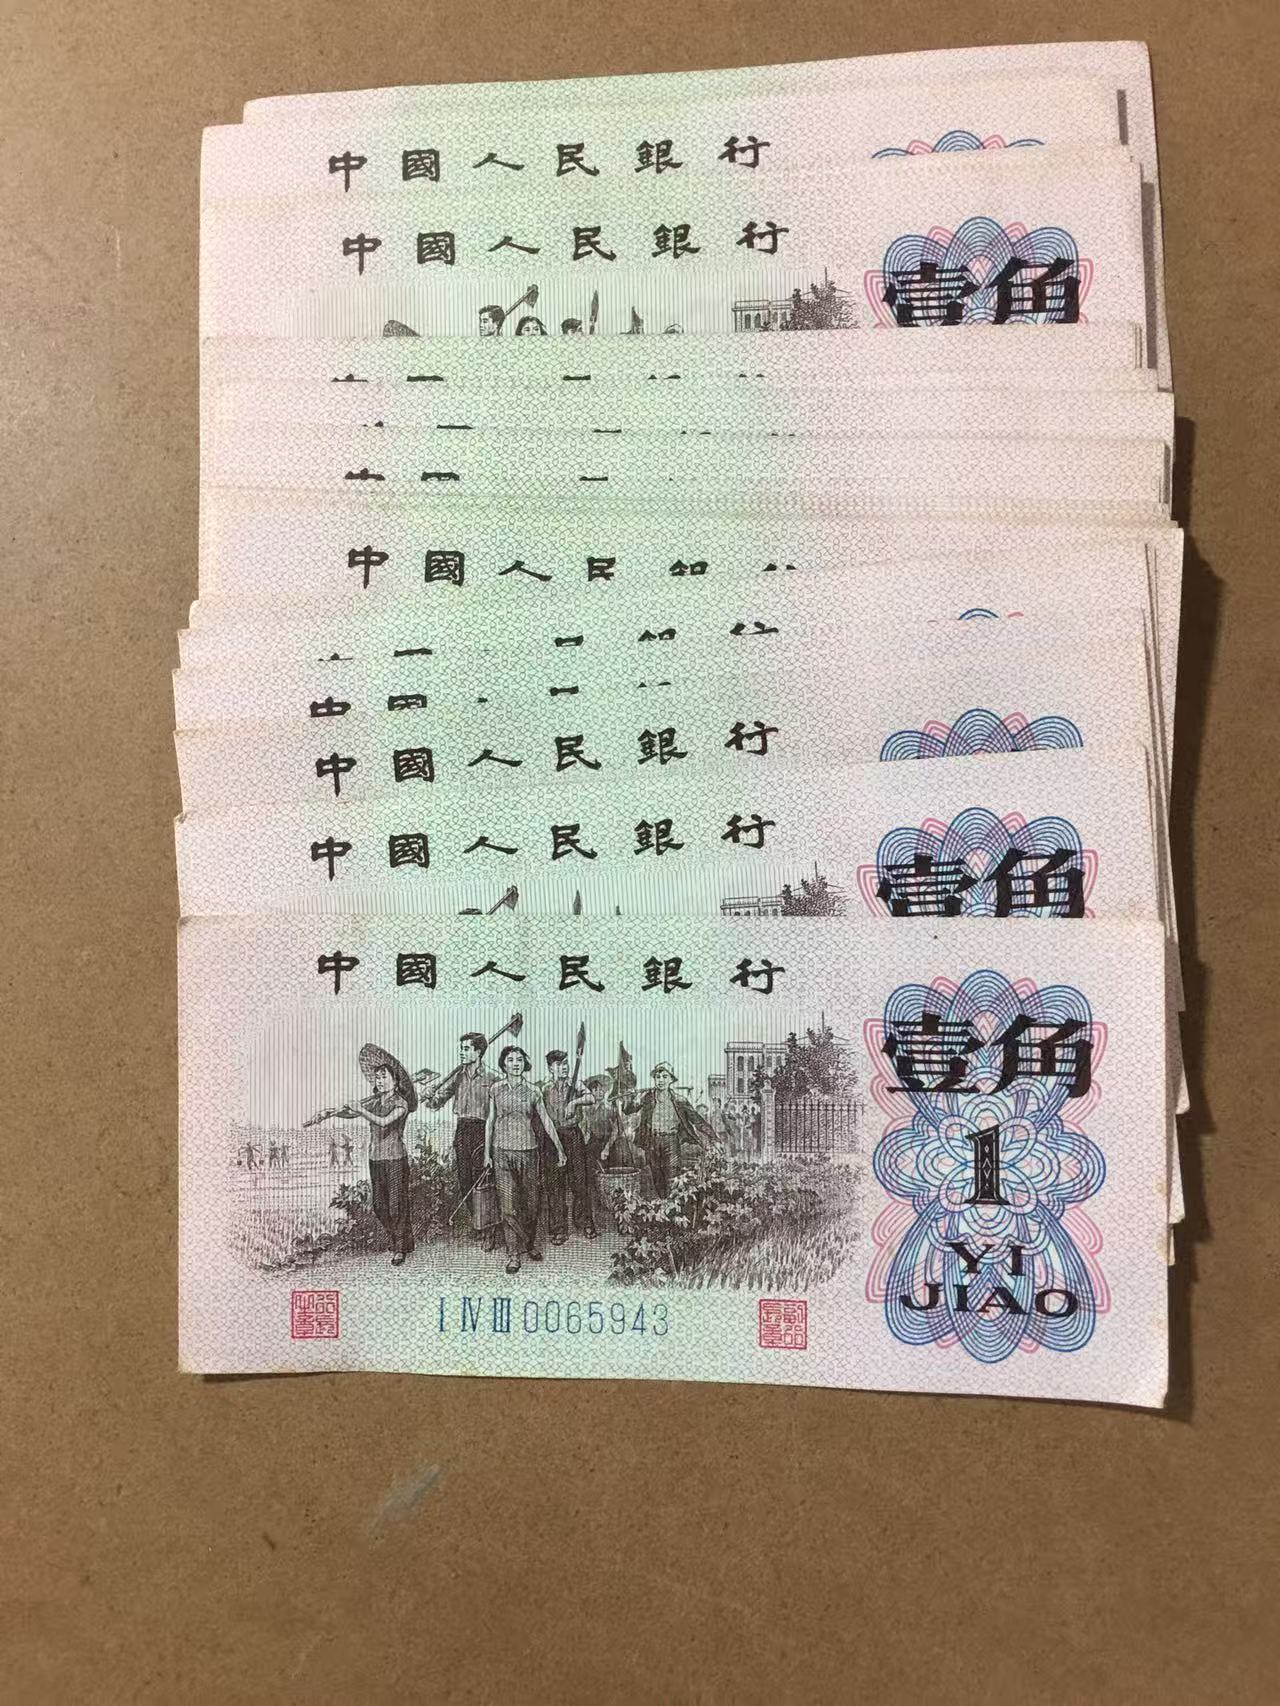 中國人民銀行
中國人民銀行
壹角
中國人民
中國人民銀行
中國人民銀行
壹角
中國人民銀行
壹角
1
YI
JIAO
I IV III 0065943